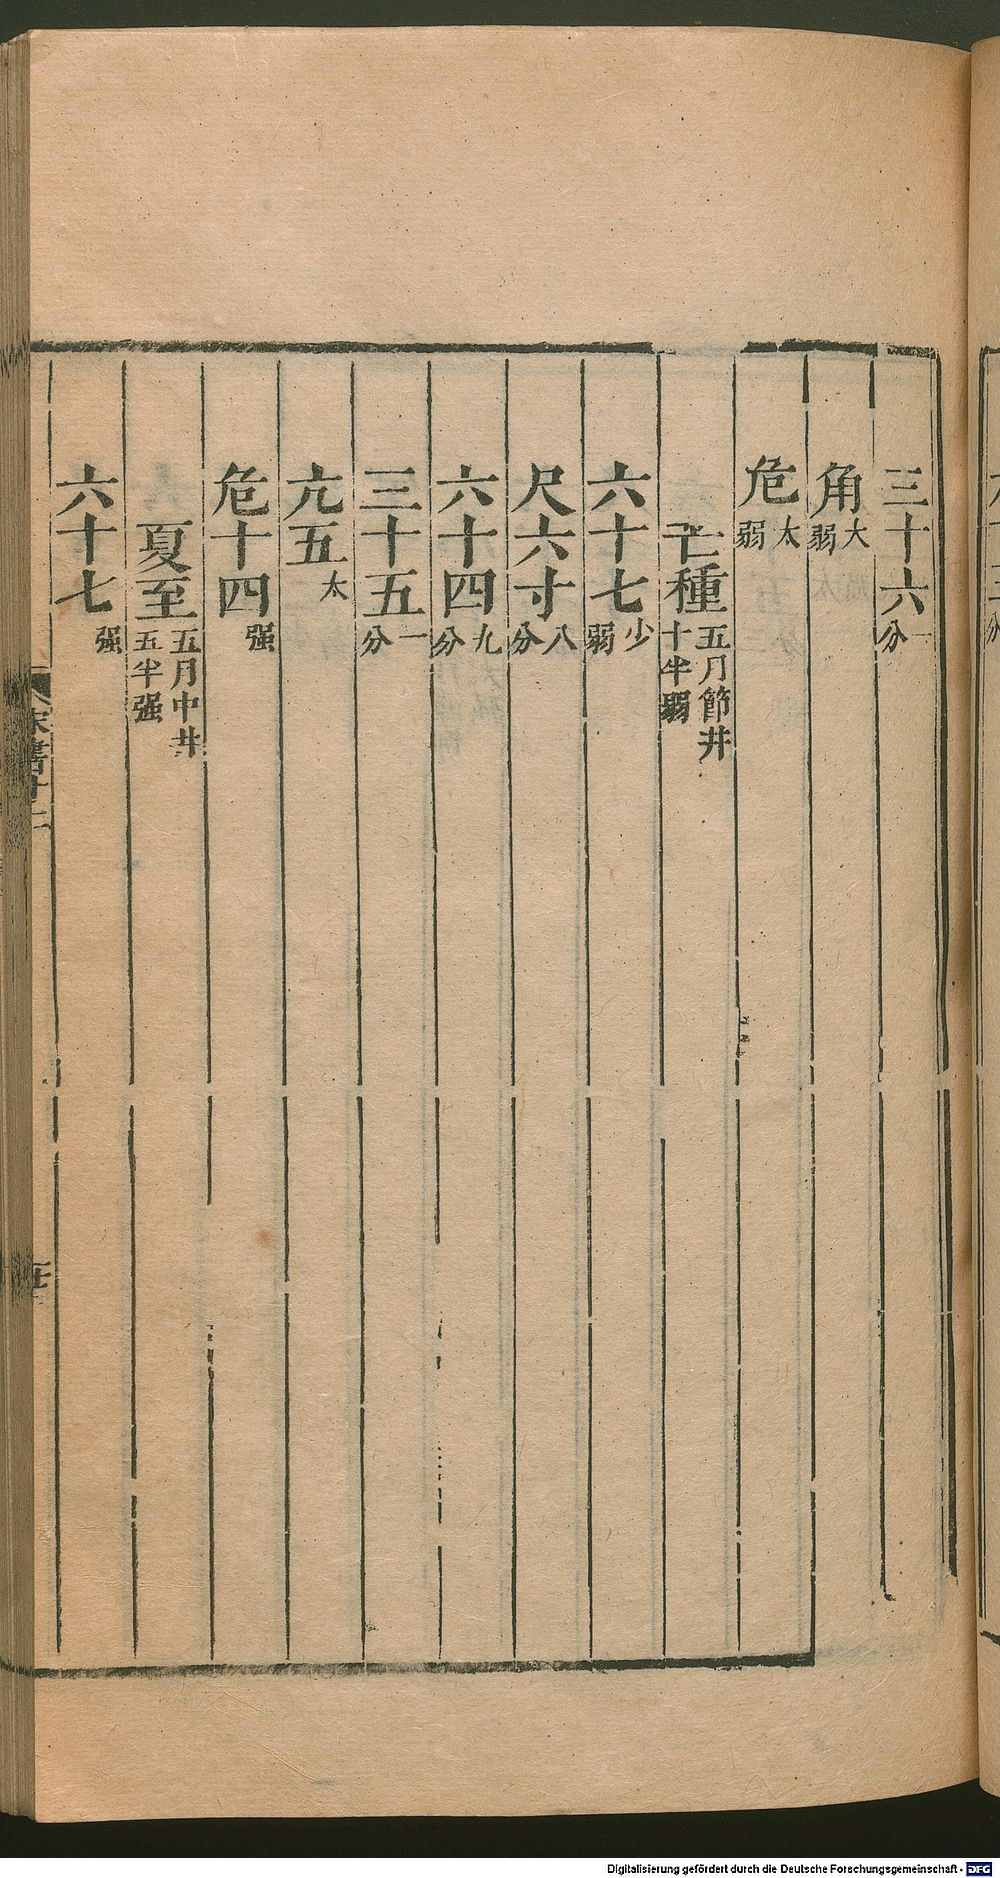 三十六一分
角大弱
危太弱
芒種五月節井十半弱
六十七少弱
尺六寸八分
六十四九分
三十五一分
亢五太
危十四强
夏至五月中井五半强
六十七强
宋書十二
Digitalisierung gefördert durch die Deutsche Forschungsgemeinschaft - DFG